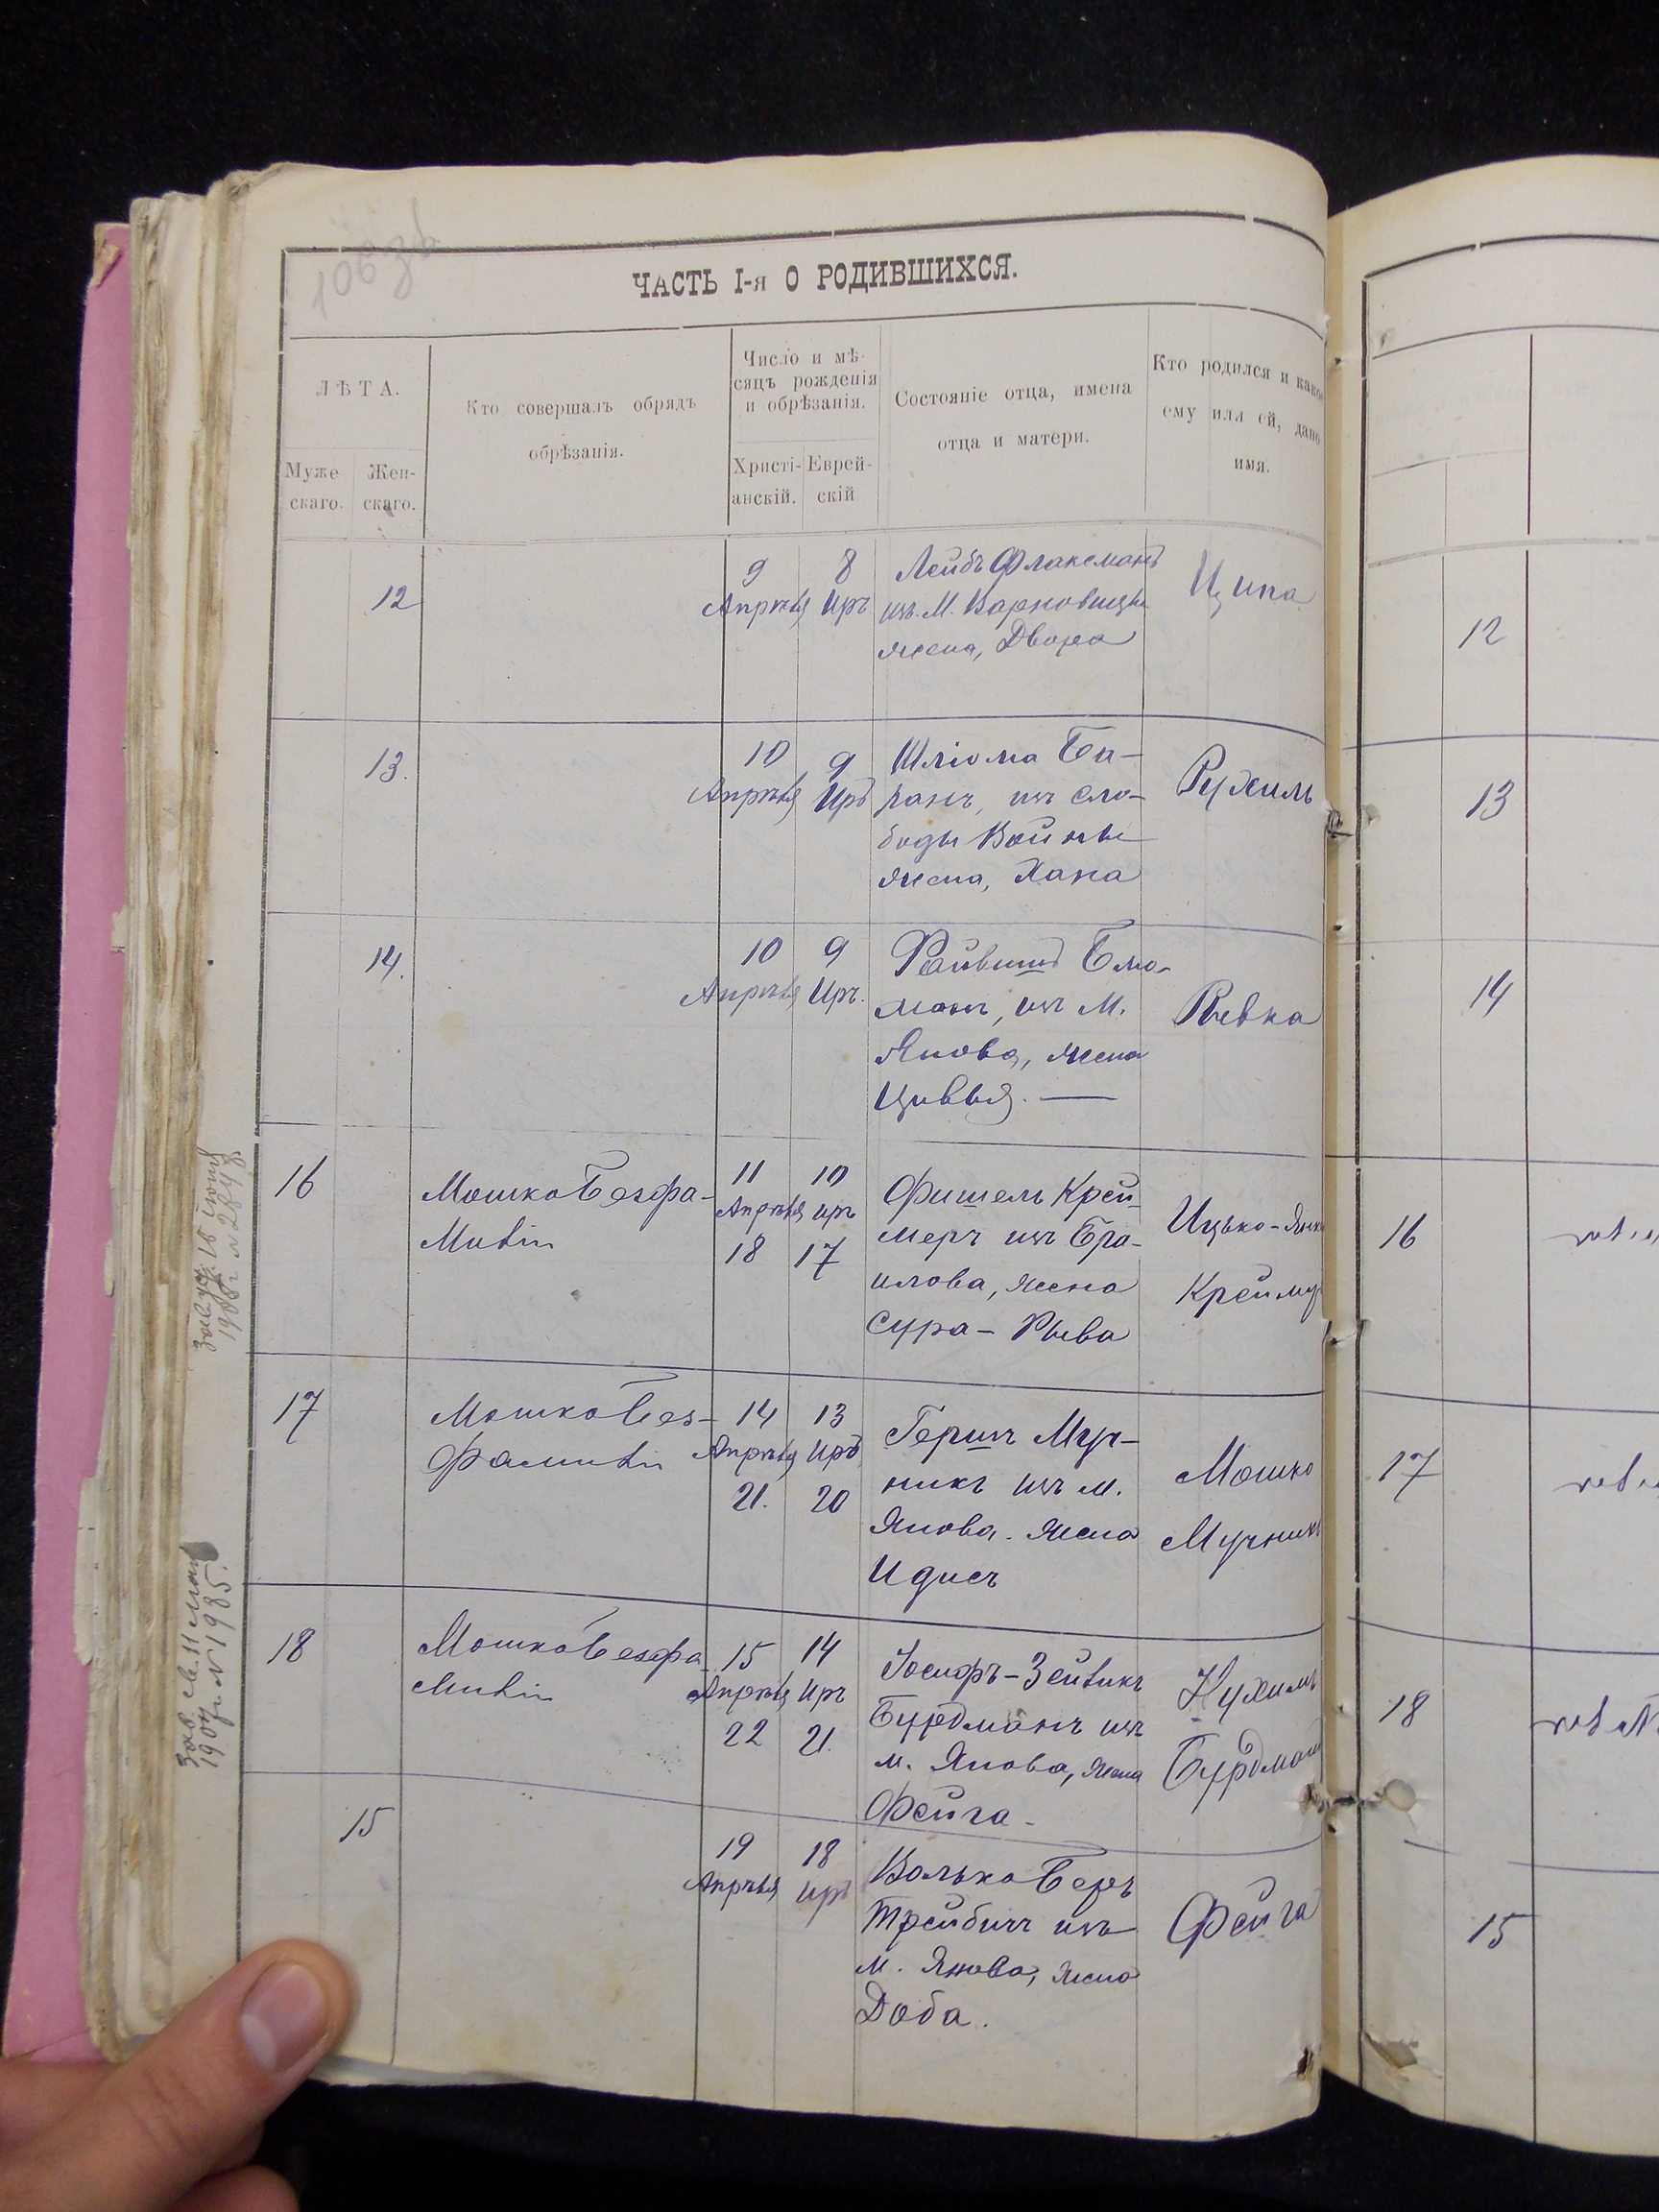 106 зв
ЧАСТЬ I-я О РОДИВШИХСЯ.
ЛѢТА.
Муже
скаго.
Жен-
скаго.
Кто совершалъ обрядъ
обрѣзанія.
Число и мѣ-
сяцъ рожденія
и обрѣзанія.
Христі-
анскій.
Еврей-
скій
Состояніе отца, имена
отца и матери.
Кто родился и како
ему или ей, дано
имя.
12
9
Апрѣля
8
Иръ
Лейбъ Флаксманъ
изъ М.
жена, Двора
Ципа
13.
10
Апрѣля
9
Иръ
Шліома Ба-
ранъ, изъ Сло-
боды Войны
жена, Хана
Рухиль
14.
10
Апрѣля
9
Иръ.
Файвишъ
изъ М.
Янова, жена
Цивья. —
Ривка
16
Мошко Безфа-
милій
11
Апрѣля
18
10
иръ
17
Фишель Крей-
меръ изъ Бра-
илова, жена
Сура - Рыва
Ицько-Янк
Креймер
17
Мошко Без-
фамилій
14
Апрѣля
21.
13
Иръ
20
Гершъ Муч-
никъ изъ м.
Янова. жена
Идись
Мошко
Мучникъ
18
Мошко Безфа-
милій
15
Апрѣля
22
14
Иръ
21.
Іосифъ-Зейликъ
Бурдманъ изъ
м. Янова, жена
Фейга -
Нухимъ
Бурдман
15
19
Апрѣля
18
иръ
Волько Беръ
Трейбичъ изъ
м. Янова, жена
Доба.
Фейга
1908 г. № 2848.
Зав. св. 11 мая
1907 г. № 1985.
12
13
14
16
17
18
15